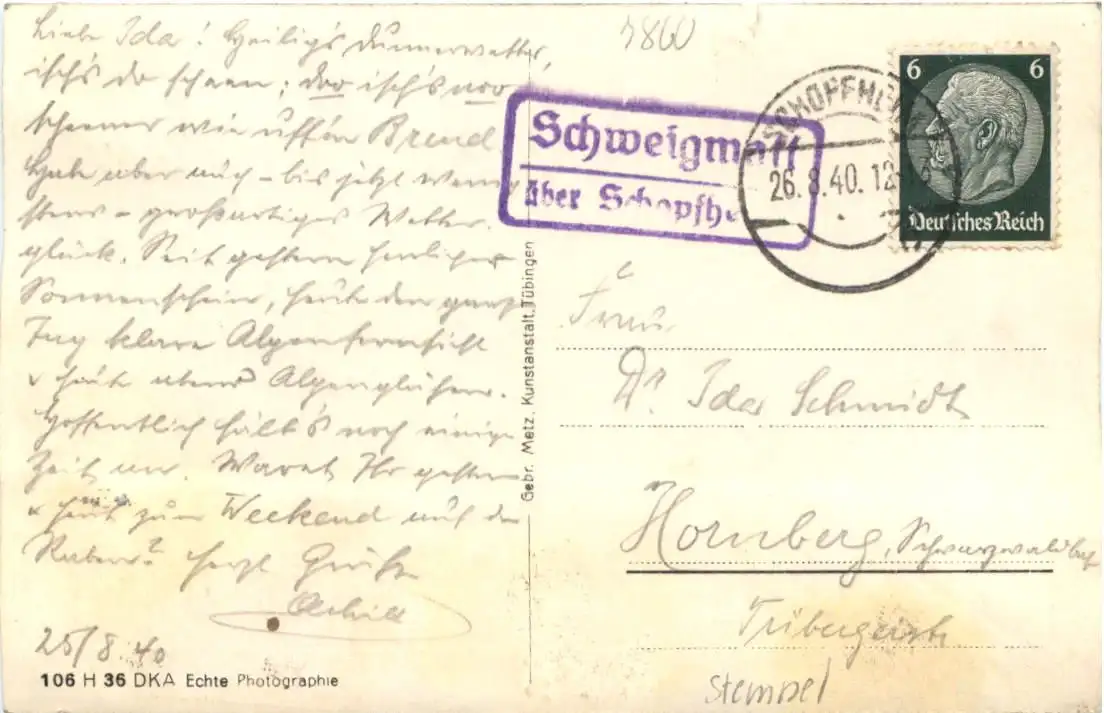 Liebe Ida! Heilig's Dunnerwetter,
isch's do scheen; doo isch's noo
scheener wie uff'm Brend.
Habe aber auch – bis jetzt wenig-
stens – großartiges Wetter-
glück. Seit gestern herrlicher
Sonnenschein, heute den ganzen
Tag klare Alpenfernsicht
u. heute abend Alpenglühen.
Hoffentlich hält's noch einige
Zeit an. Waret Ihr gestern
u. heute zum Weekend auf dem
Raben? Herzl. Grüße
25/8.40
106 H 36 DKA Echte Photographie
Gebr. Metz, Kunstanstalt, Tübingen
5860
Schweigmatt
über Schopfhe
SCHOPFHEI
26.8.40.12
6 6
Deutsches Reich
Frau
Dr. Ida Schmidt
Hornberg, Schwarzwaldbahn
Tribergerstr.
Stempel